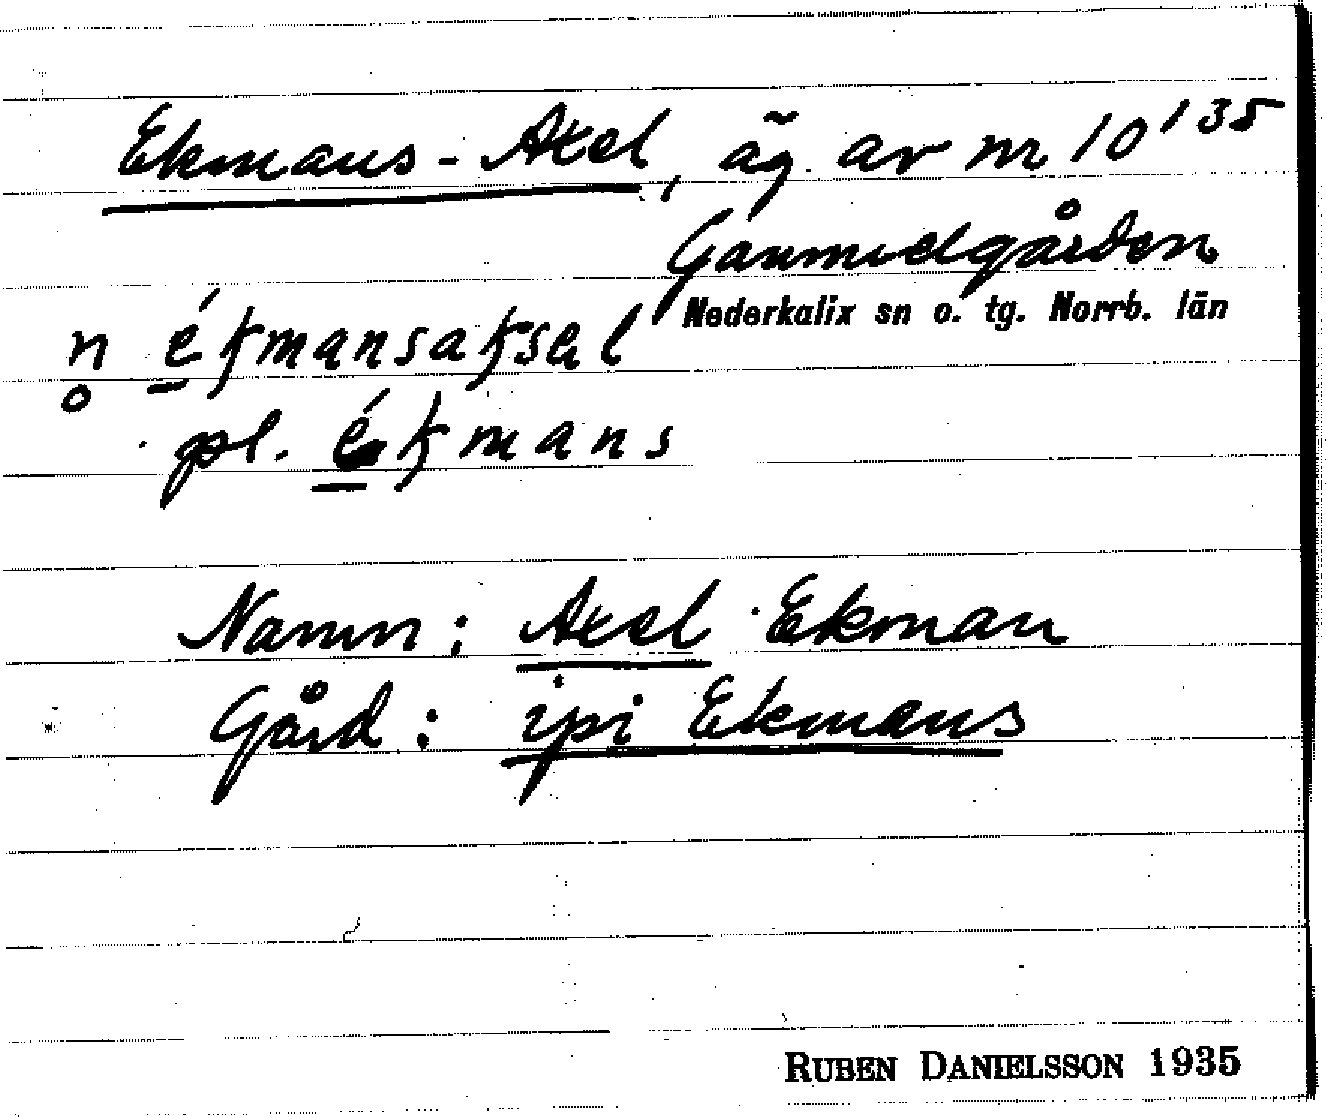 Ekmans-Axel, äg. av nr 10 135
Gammelgården
Nederkalix sn o. tg. Norrb. län
n ékmansaksəl
pl. ékmans
Namn: Axel Ekman
Gård: ipi Ekmans
RUBEN DANIELSSON 1935